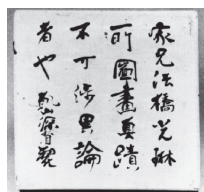 家兄法橋光琳
所圖畫真蹟
不可涉異論
者也 乾山深省製